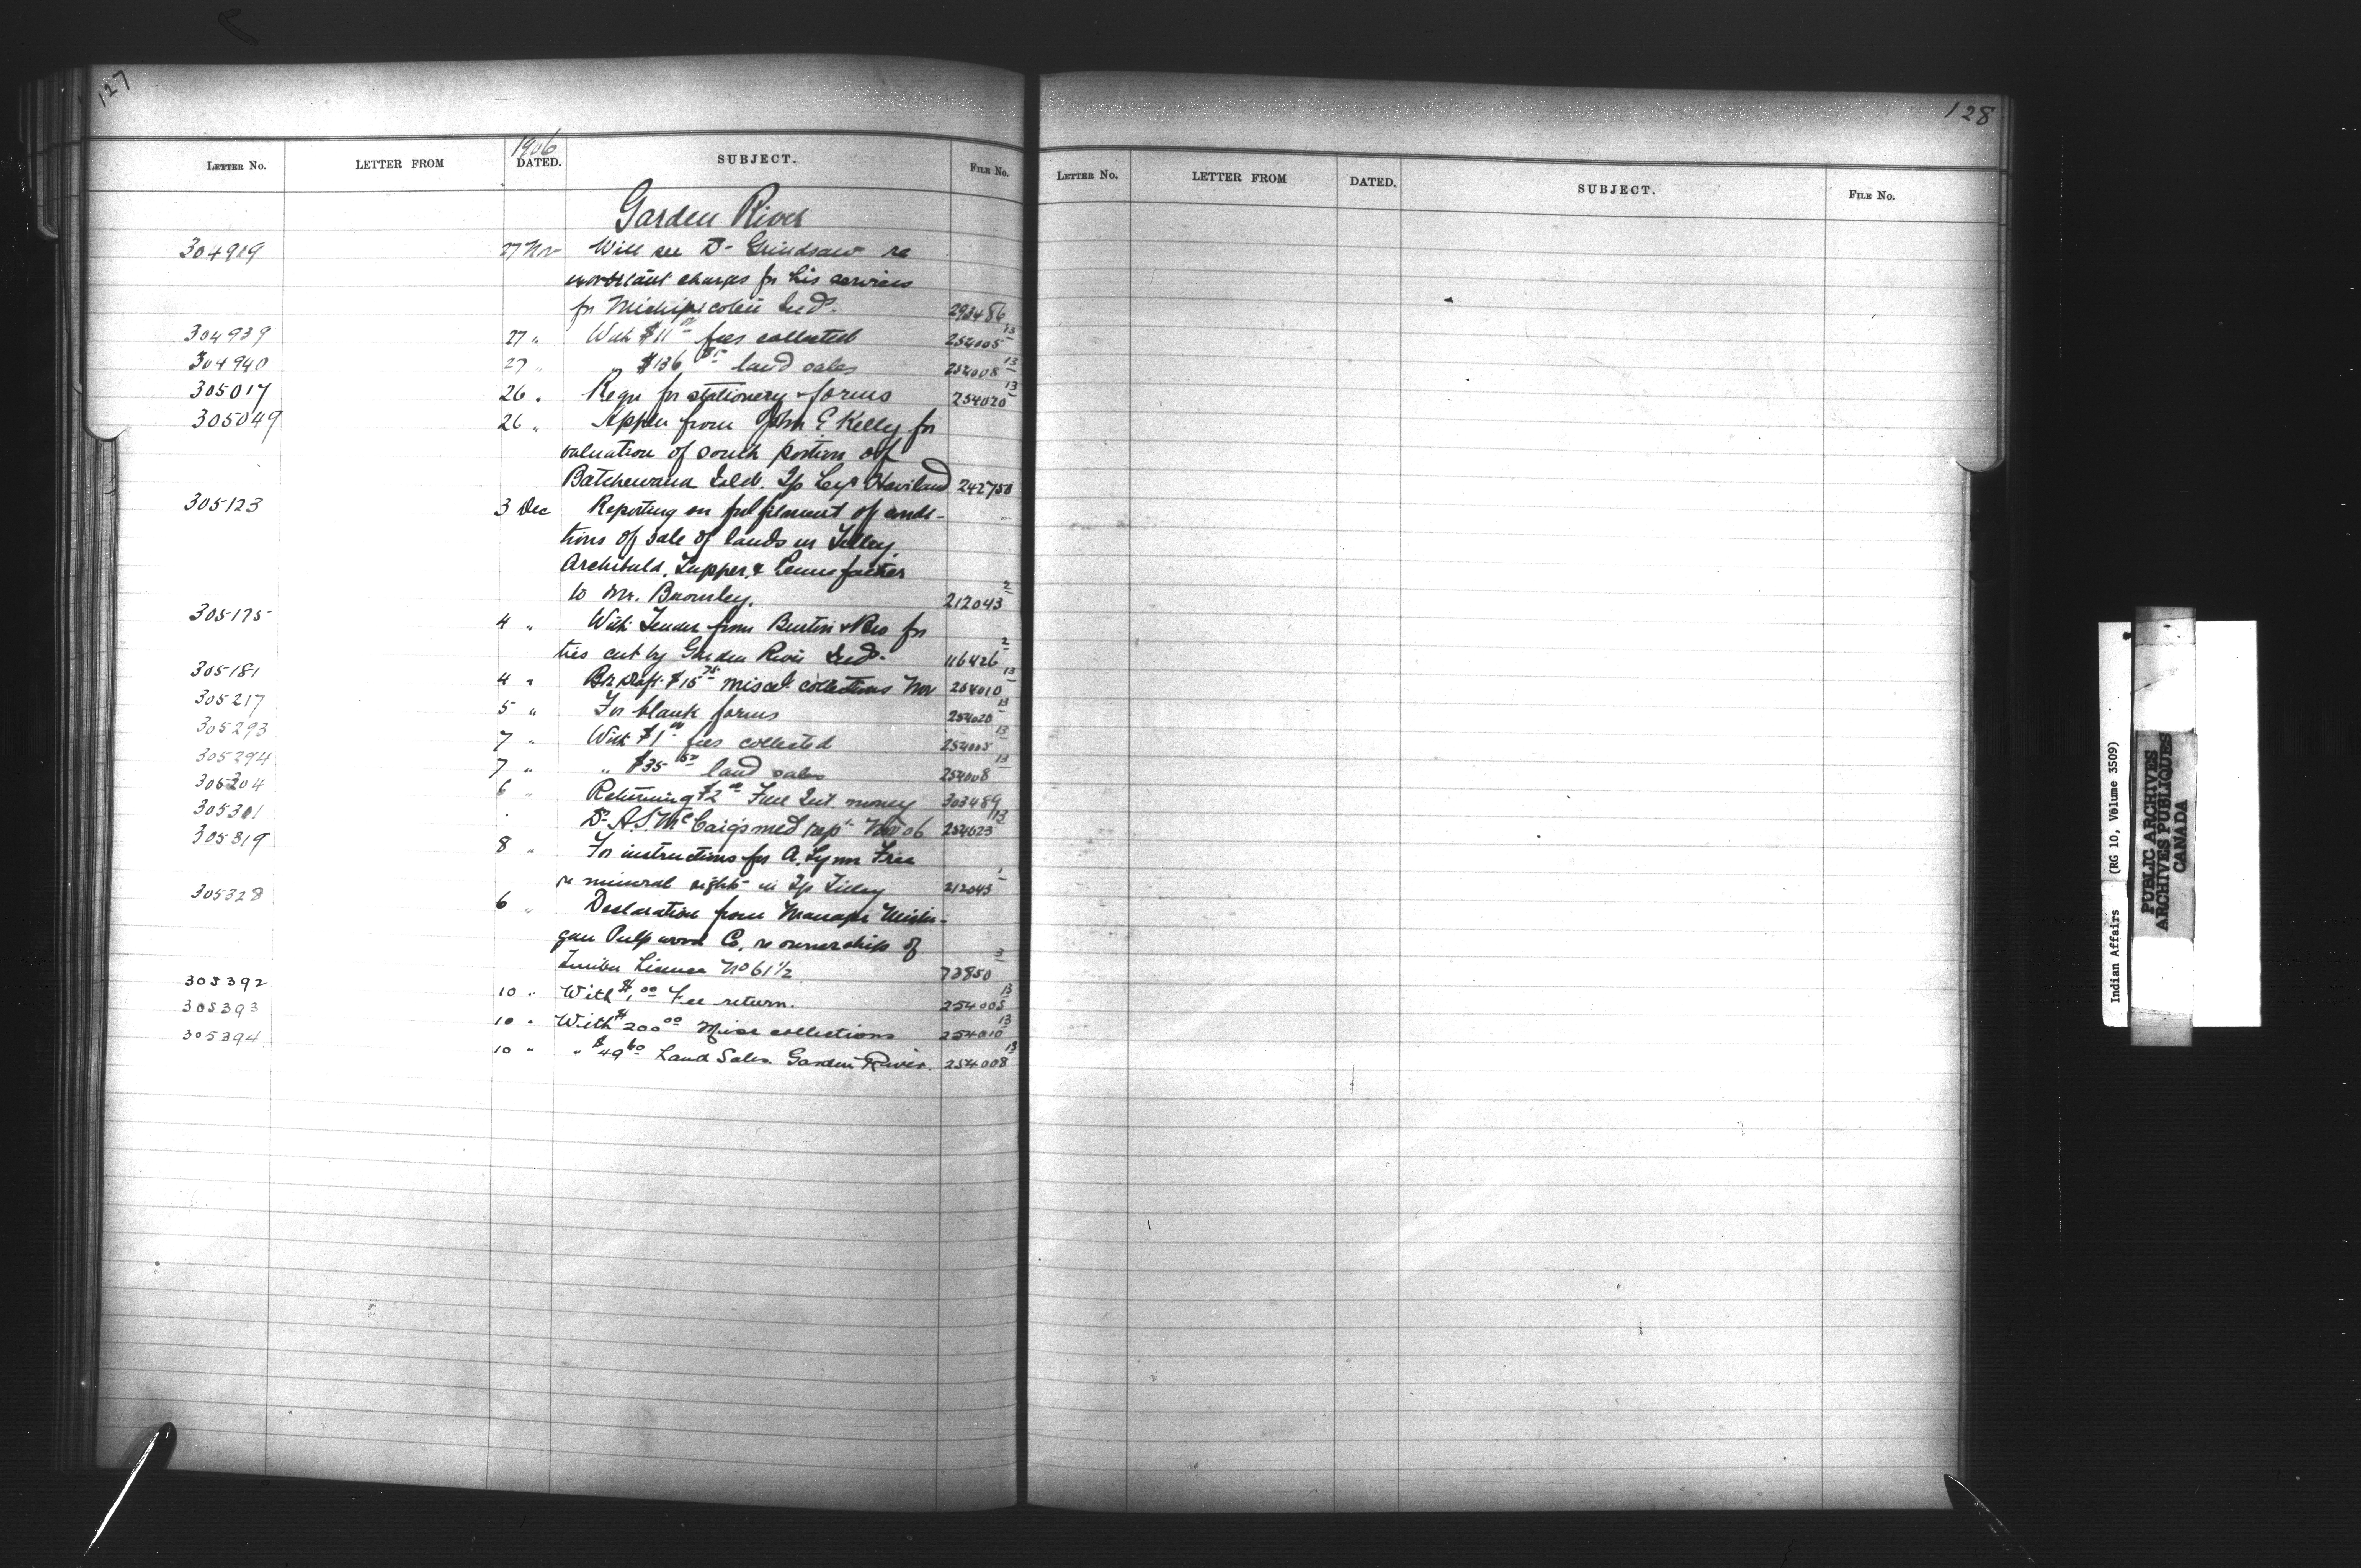 127
1906
LETTER NO. LETTER FROM DATED. SUBJECT. FILE NO.
Garden River
304919 27 Nov Will see Dr Grindsaw re
exorbitant charges for his services
for Michipicoten Inds. 293486
304939 27 " With $11 00 fees collected 254005 13
304940 27 " " $136 85 land sales 254008 13
305017 26 " Reqn for stationery & forms 254020 13
305049 26 " Appln from John E Kelly for
valuation of south portion of
Batchewana Isld. Tp Haviland 242750
305123 3 Dec Reporting on fulfilment of condi-
tions of sale of lands in Tilley,
Archibald, Tupper, & Pennefather
to Mr. Bromley. 212043 2
305175 4 " With Tender from Burton & Bro for
ties cut by Garden River Inds. 116426 2
305181 4 " Bk Draft $15 75 miscel. collections Nov 254010 13
305217 5 " For blank forms 254020 13
305293 7 " With $1 00 fees collected 254005 13
305294 7 " " $35 land sales 254008 13
305304 6 " Returning $2 00 money 303489
305301 Dr A.S. McCaig's med rept Nov 06 254023 13
305319 8 " For instructions for A. Lynn Free
re mineral rights in Tp Tilley 212043 1
305328 6 " Declaration from Manager Michi-
gan Pulpwood Co. re ownership of
Timber License No 61 1/2 73850 3
305392 10 " With $1 00 Fee return. 254005 13
305393 10 " With $200 00 Misc collections 254010 13
305394 10 " " $49 60 Land Sales. Garden River. 254008 13
128
LETTER NO. LETTER FROM DATED. SUBJECT. FILE NO.
Indian Affairs (RG 10, Volume 3509)
PUBLIC ARCHIVES
ARCHIVES PUBLIQUES
CANADA